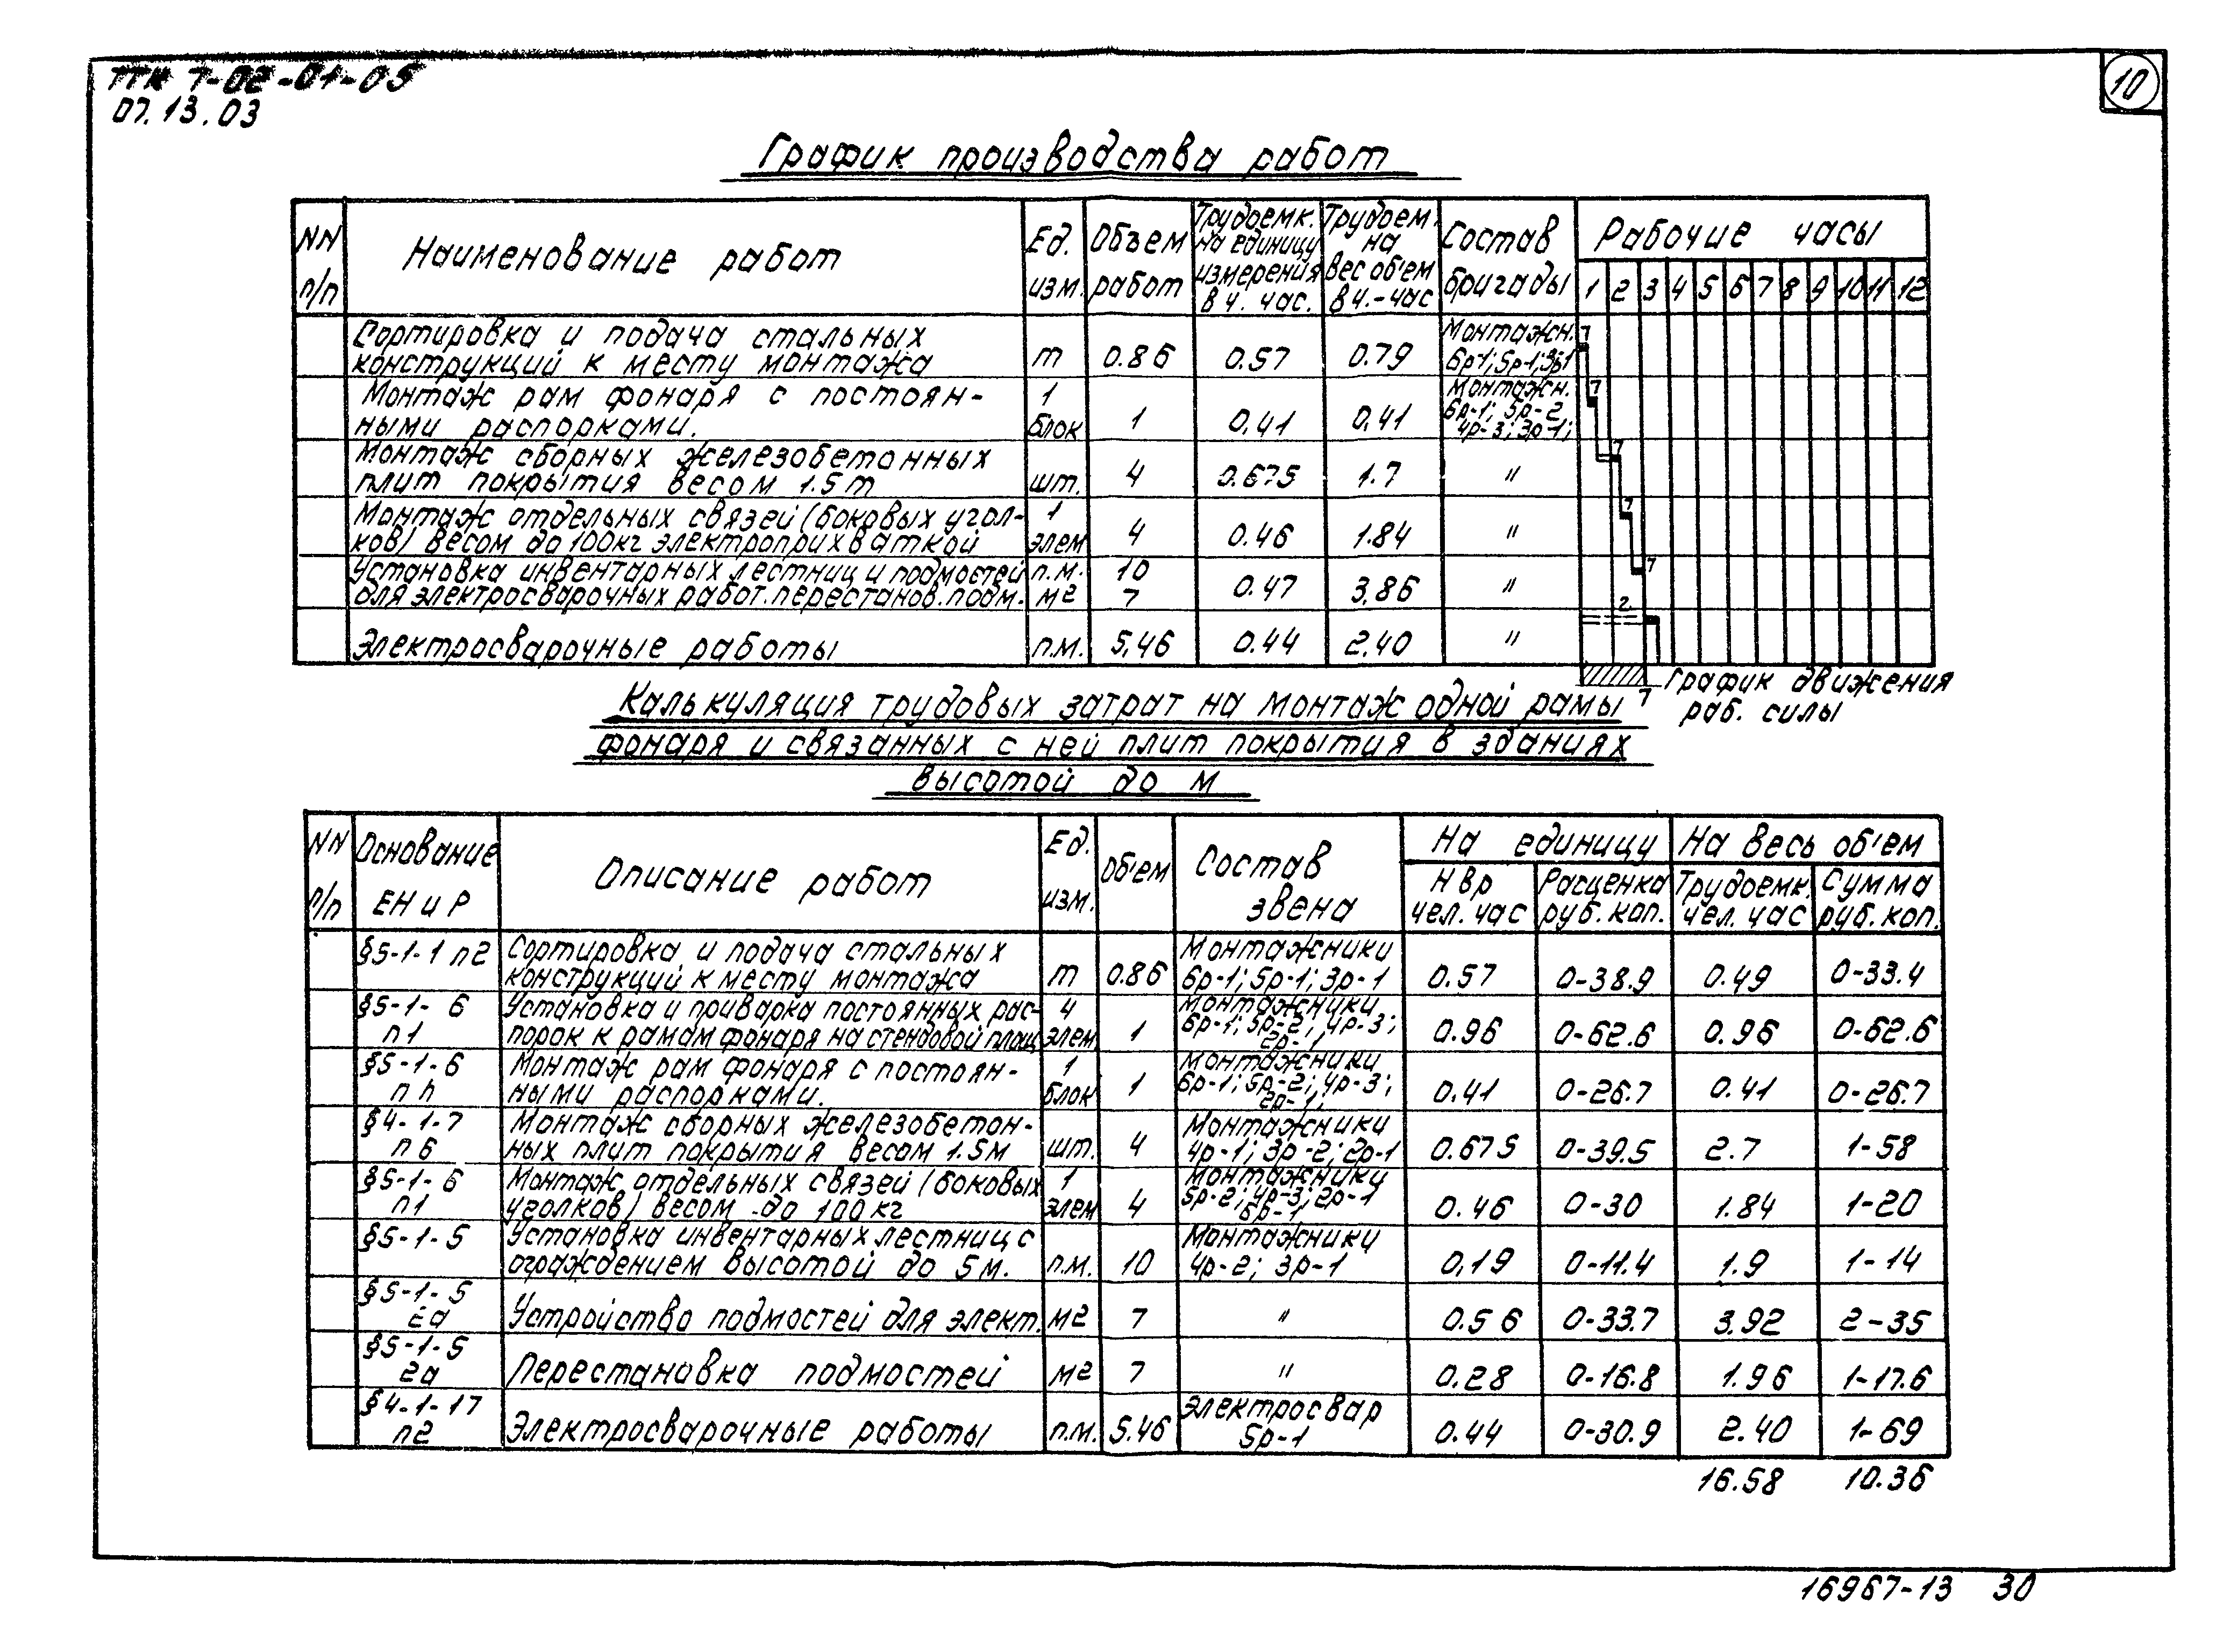 ТТК 7-02-01-05
07.13.03
10
График производства работ
NN п/п | Наименование работ | Ед. изм. | Объем работ | Трудоемк. на единицу измерения в ч. час. | Трудоем. на вес об'ем в ч.-час | Состав бригады | Рабочие часы
1 2 3 4 5 6 7 8 9 10 11 12
Сортировка и подача стальных конструкций к месту монтажа | т | 0.86 | 0.57 | 0.79 | Монтажн. 6р-1; 5р-1; 3р-1 | 7
Монтаж рам фонаря с постоян-
ными распорками. | 1 блок | 1 | 0.41 | 0.41 | Монтажн. 6р-1; 5р-2 4р-3; 3р-1; | 7
Монтаж сборных железобетонных плит покрытия весом 1.5т | шт. | 4 | 0.675 | 1.7 | " | 7
Монтаж отдельных связей (боковых угол-
ков) весом до 100кг электроприхваткой | 1 элем | 4 | 0.46 | 1.84 | " | 7
Установка инвентарных лестниц и подмостей п.м. 10
для электросварочных работ. перестанов. подм. м2 7 | 0.47 | 3.86 | " | 7
Электросварочные работы | п.м. | 5.46 | 0.44 | 2.40 | " | 2
7 График движения
раб. силы
Калькуляция трудовых затрат на монтаж одной рамы
фонаря и связанных с ней плит покрытия в зданиях
высотой до м
NN п/п | Основание ЕНиР | Описание работ | Ед. изм. | Об'ем | Состав звена | На единицу | На весь об'ем
Нвр чел. час | Расценка руб. коп. | Трудоемк. чел. час | Сумма руб. коп.
§5-1-1 п2 | Сортировка и подача стальных конструкций к месту монтажа | т | 0.86 | Монтажники 6р-1; 5р-1; 3р-1 | 0.57 | 0-38.9 | 0.49 | 0-33.4
§5-1-6 п1 | Установка и приварка постоянных рас-
порок к рамам фонаря на стендовой площ | 4 элем | 1 | Монтажники 6р-1; 5р-2, 4р-3; 2р-1 | 0.96 | 0-62.6 | 0.96 | 0-62.6
§5-1-6 п h | Монтаж рам фонаря с постоян-
ными распорками. | 1 блок | 1 | Монтажники 6р-1; 5р-2; 4р-3; 2р-1; | 0.41 | 0-26.7 | 0.41 | 0-26.7
§4-1-7 п6 | Монтаж сборных железобетон-
ных плит покрытия весом 1.5м | шт. | 4 | Монтажники 4р-1; 3р-2; 2р-1 | 0.675 | 0-39.5 | 2.7 | 1-58
§5-1-6 п1 | Монтаж отдельных связей (боковых уголков) весом до 100кг | 1 элем | 4 | Монтажники 5р-2; 4р-3; 2р-1 6р-1 | 0.46 | 0-30 | 1.84 | 1-20
§5-1-5 | Установка инвентарных лестниц с ограждением высотой до 5м. | п.м. | 10 | Монтажники 4р-2; 3р-1 | 0,19 | 0-11.4 | 1.9 | 1-14
§5-1-5 2а | Устройство подмостей для элект. | м2 | 7 | " | 0.56 | 0-33.7 | 3.92 | 2-35
§5-1-5 2а | Перестановка подмостей | м2 | 7 | " | 0.28 | 0-16.8 | 1.96 | 1-17.6
§4-1-17 п2 | Электросварочные работы | п.м. | 5.46 | Электросвар 5р-1 | 0.44 | 0-30.9 | 2.40 | 1-69
16.58 10.36
16967-13 30